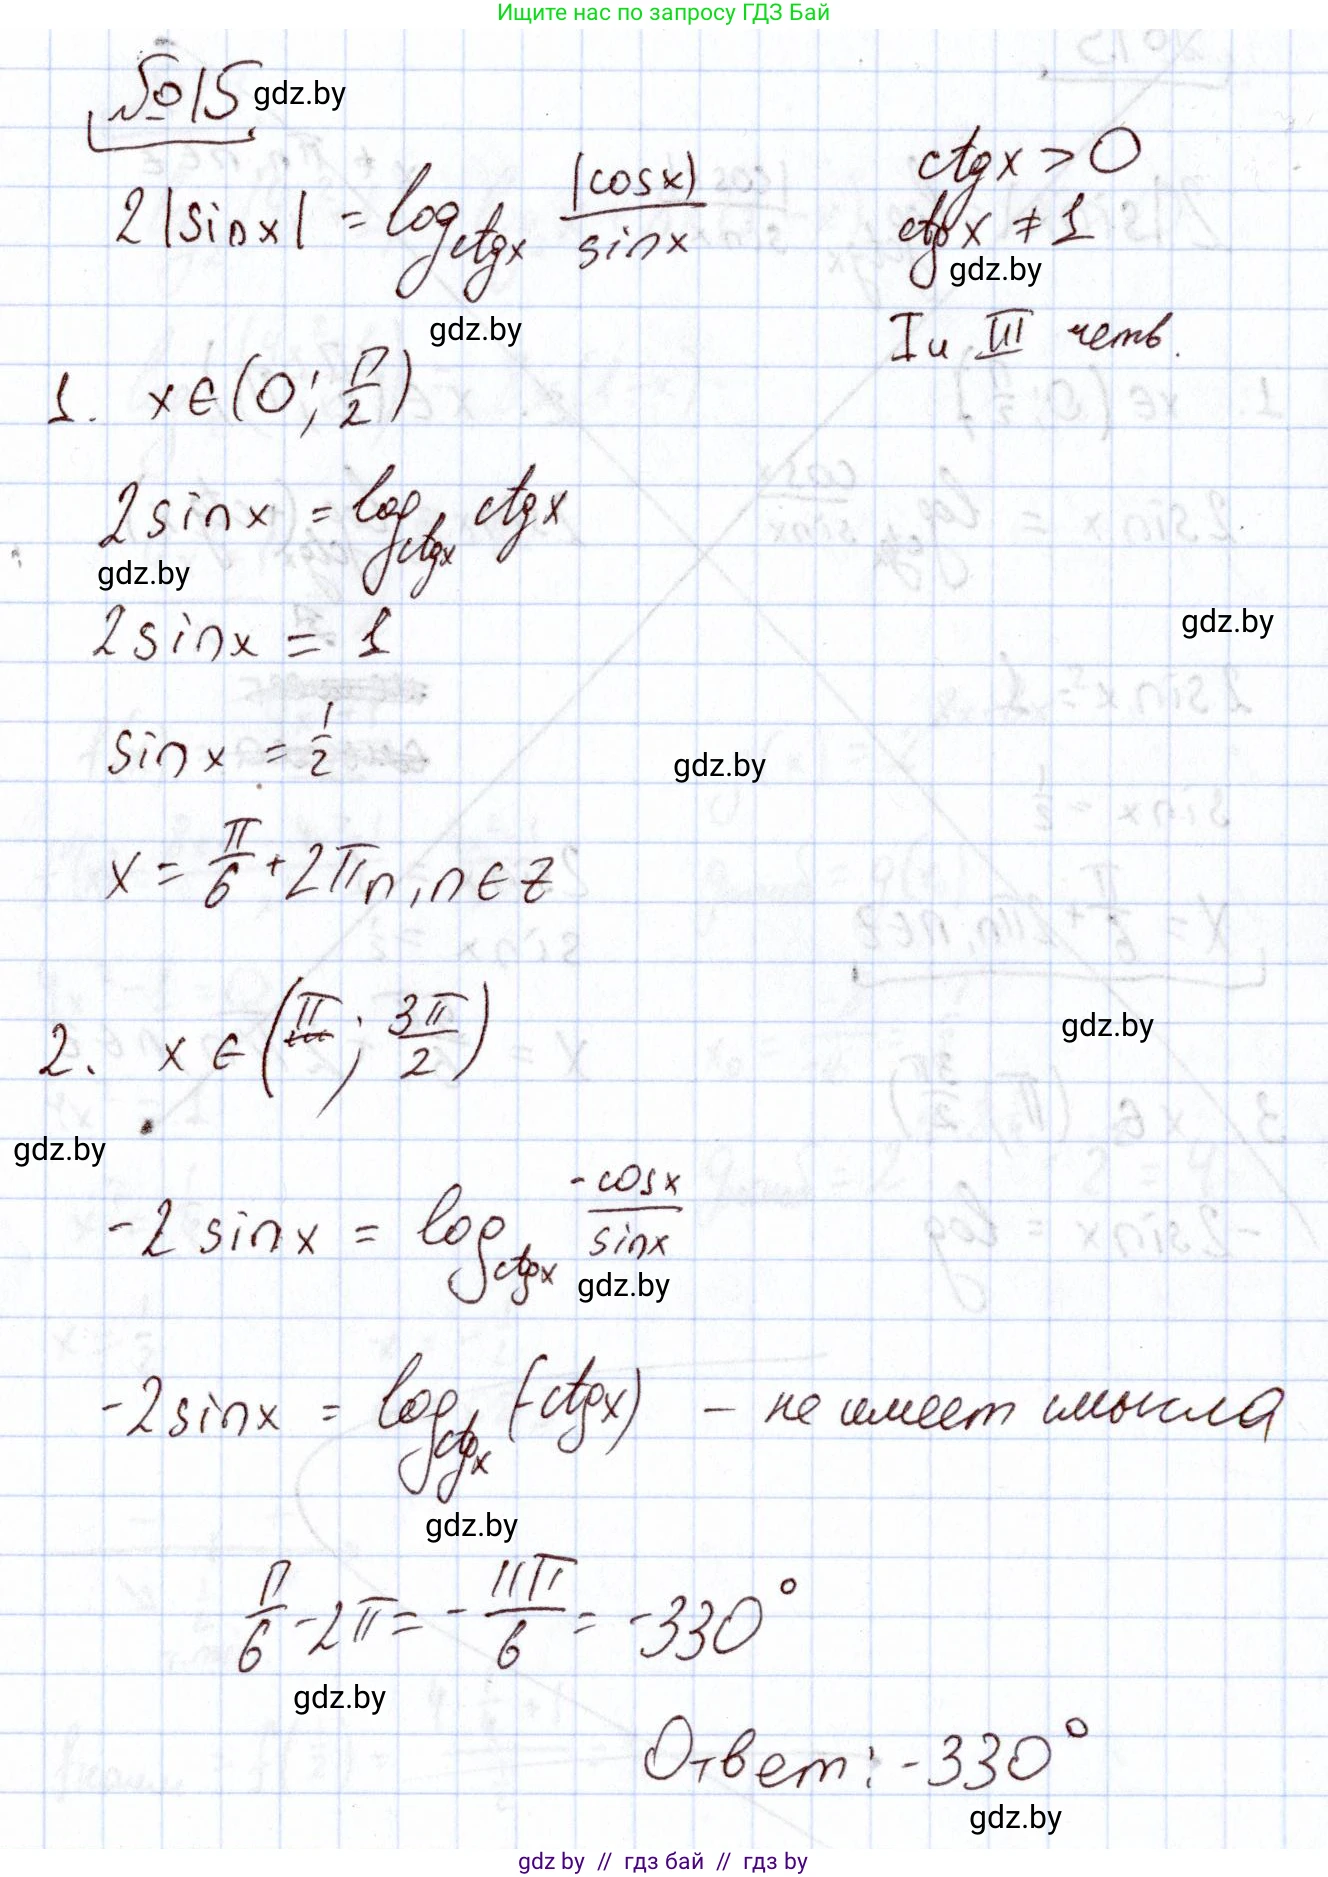 Ищите нас по запросу ГДЗ Бай
№15 gdz.by
2|sinx| = log_ctgx |cosx|/sinx
ctgx > 0
ctgx ≠ 1
gdz.by
gdz.by
I и III четв.
1. x∈(0; π/2)
2sinx = log_ctgx ctgx
gdz.by
gdz.by
2sinx = 1
sinx = 1/2
gdz.by
x = π/6 + 2πn, n∈Z
2. x∈(π; 3π/2)
gdz.by
gdz.by
-2sinx = log_ctgx -cosx/sinx
gdz.by
-2sinx = log_ctgx (-ctgx) – не имеет смысла
gdz.by
π/6 - 2π = - 11π/6 = -330°
gdz.by
Ответ: -330°
gdz.by
gdz by // гдз бай // гдз by